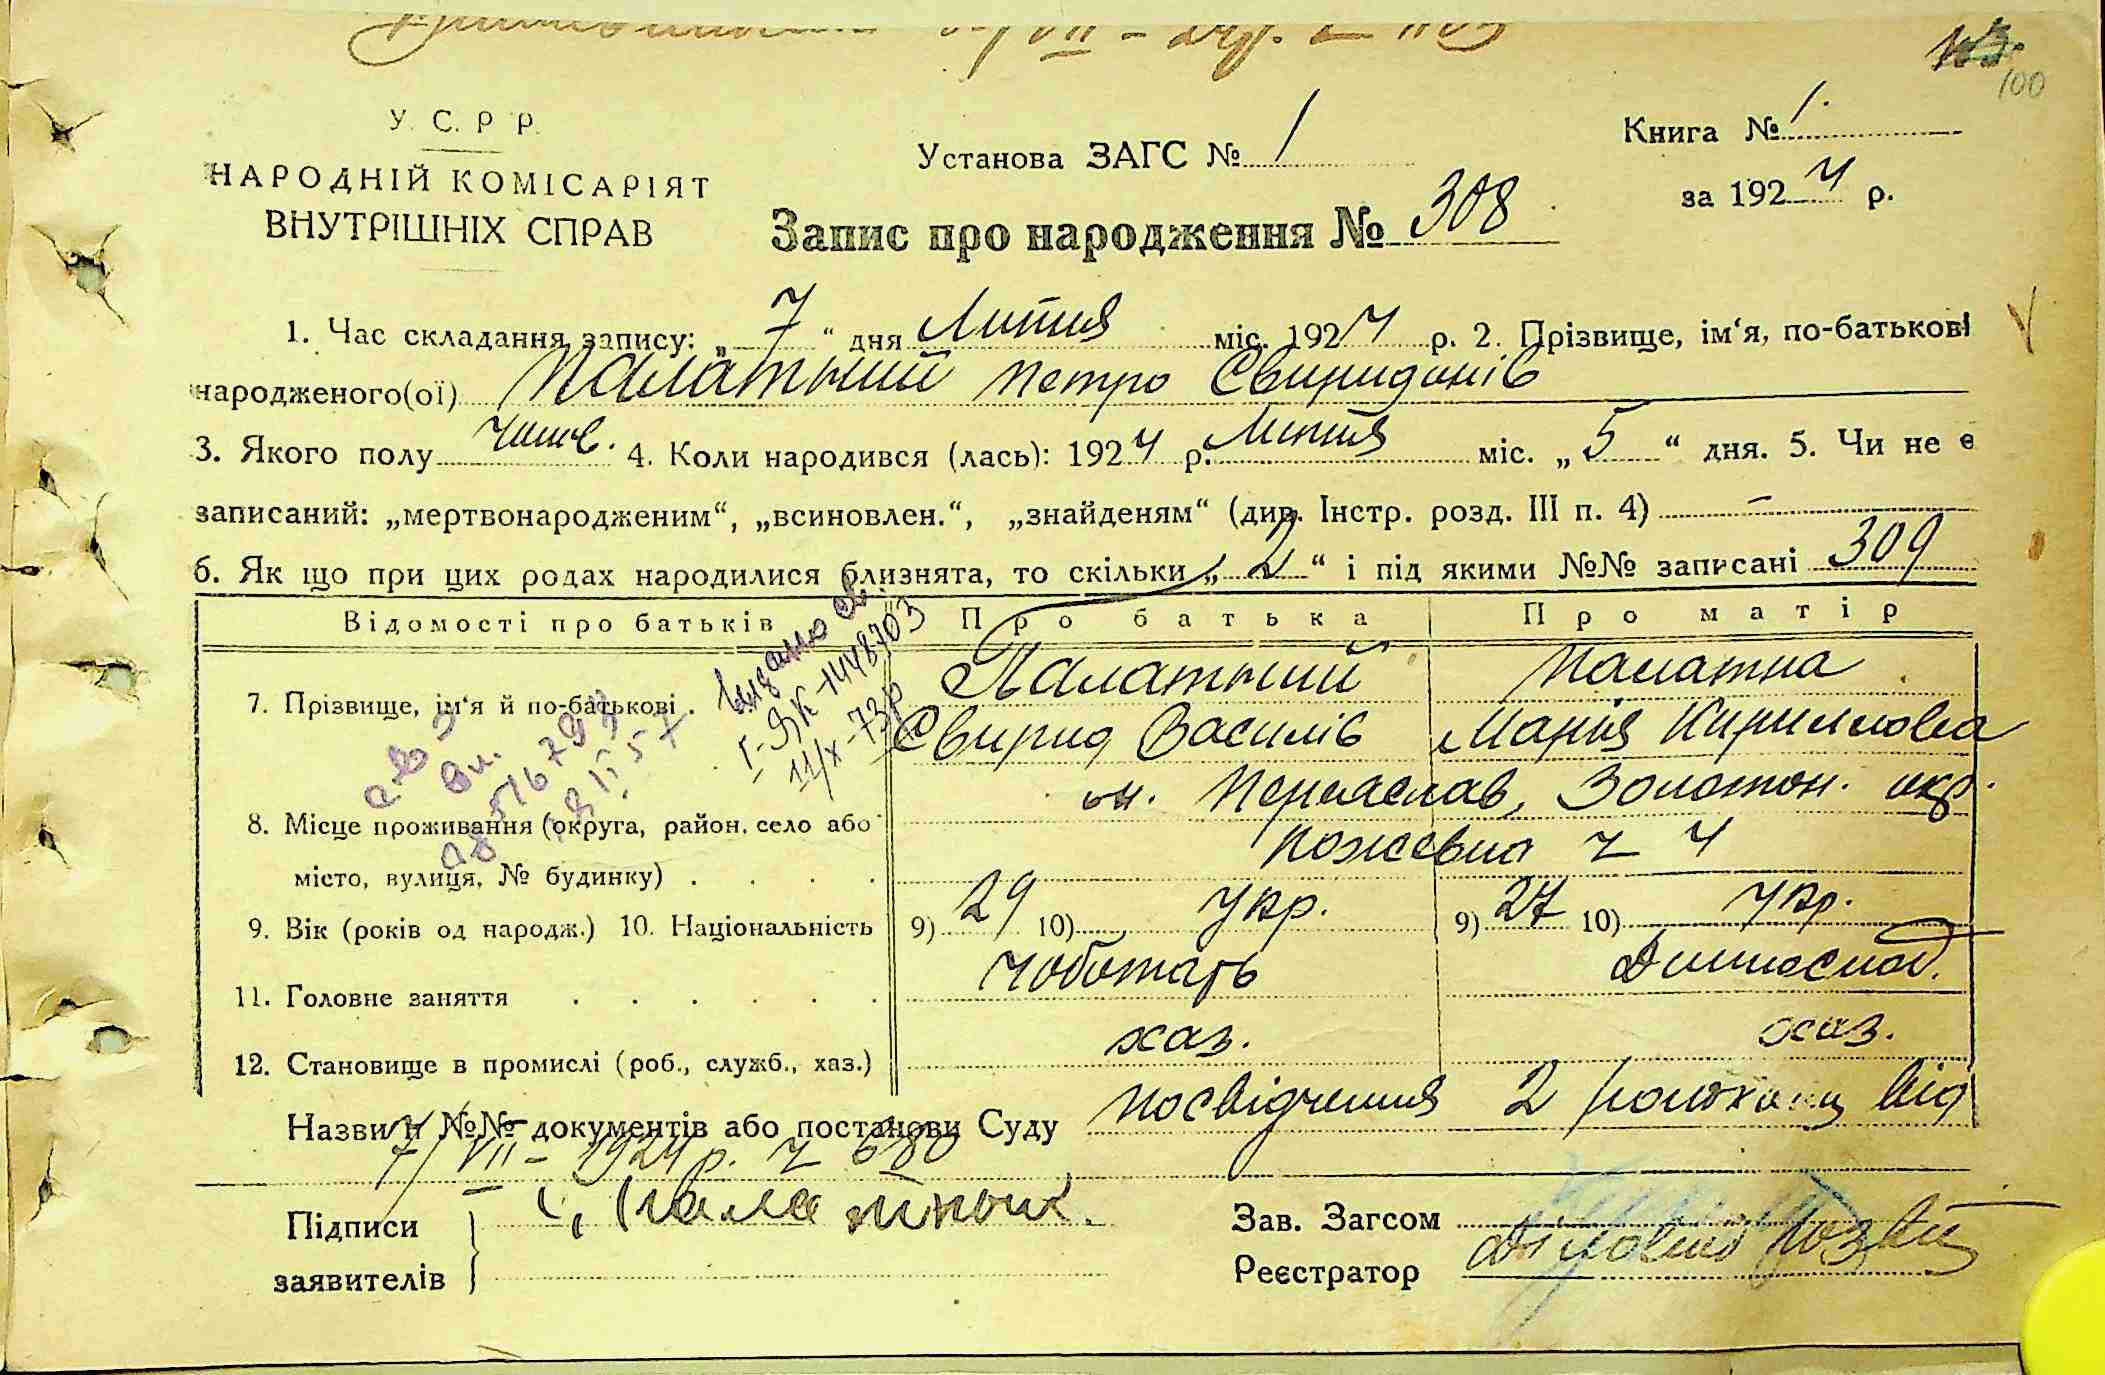 100
У. С. Р. Р.
НАРОДНІЙ КОМІСАРІЯТ
ВНУТРІШНІХ СПРАВ
Установа ЗАГС № 1
Книга № 1
за 1924 р.
Запис про народження № 308
1. Час складання запису: „ 7 " дня Липня міс. 1924 р. 2. Прізвище, ім'я, по-батькові
народженого(ої) Палатний Петро Свиридонів
3. Якого полу чолов. 4. Коли народився (лась): 1924 р. Липня міс. „ 5 " дня. 5. Чи не є
записаний: „мертвонародженим", „всиновлен.", „знайденям" (див. Інстр. розд. III п. 4) –
6. Як що при цих родах народилися близнята, то скільки „ 2 " і під якими №№ записані 309
Відомості про батьків Про батька Про матір
7. Прізвище, ім'я й по-батькові . Палатний Палатна
Свирид Василів Марія Кирилловна
видано св.
І-ЯК-1448703
11/X-73р
8. Місце проживання (округа, район, село або м. Переяслав, Золотон. окр.
місто, вулиця, № будинку) . . . . Кожевна ч 4
9. Вік (років од народж.) 10. Національність 9) 29 10) Укр. 9) 27 10) Укр.
11. Головне заняття . . . . . . Чоботарь Домогосп.
12. Становище в промислі (роб., служб., хаз.) хаз. хаз.
Назви й №№ документів або постанови Суду посвідчення 2 від
7/VII – 1924 р. ч 680
Підписи
заявителів
Зав. Загсом
Реєстратор